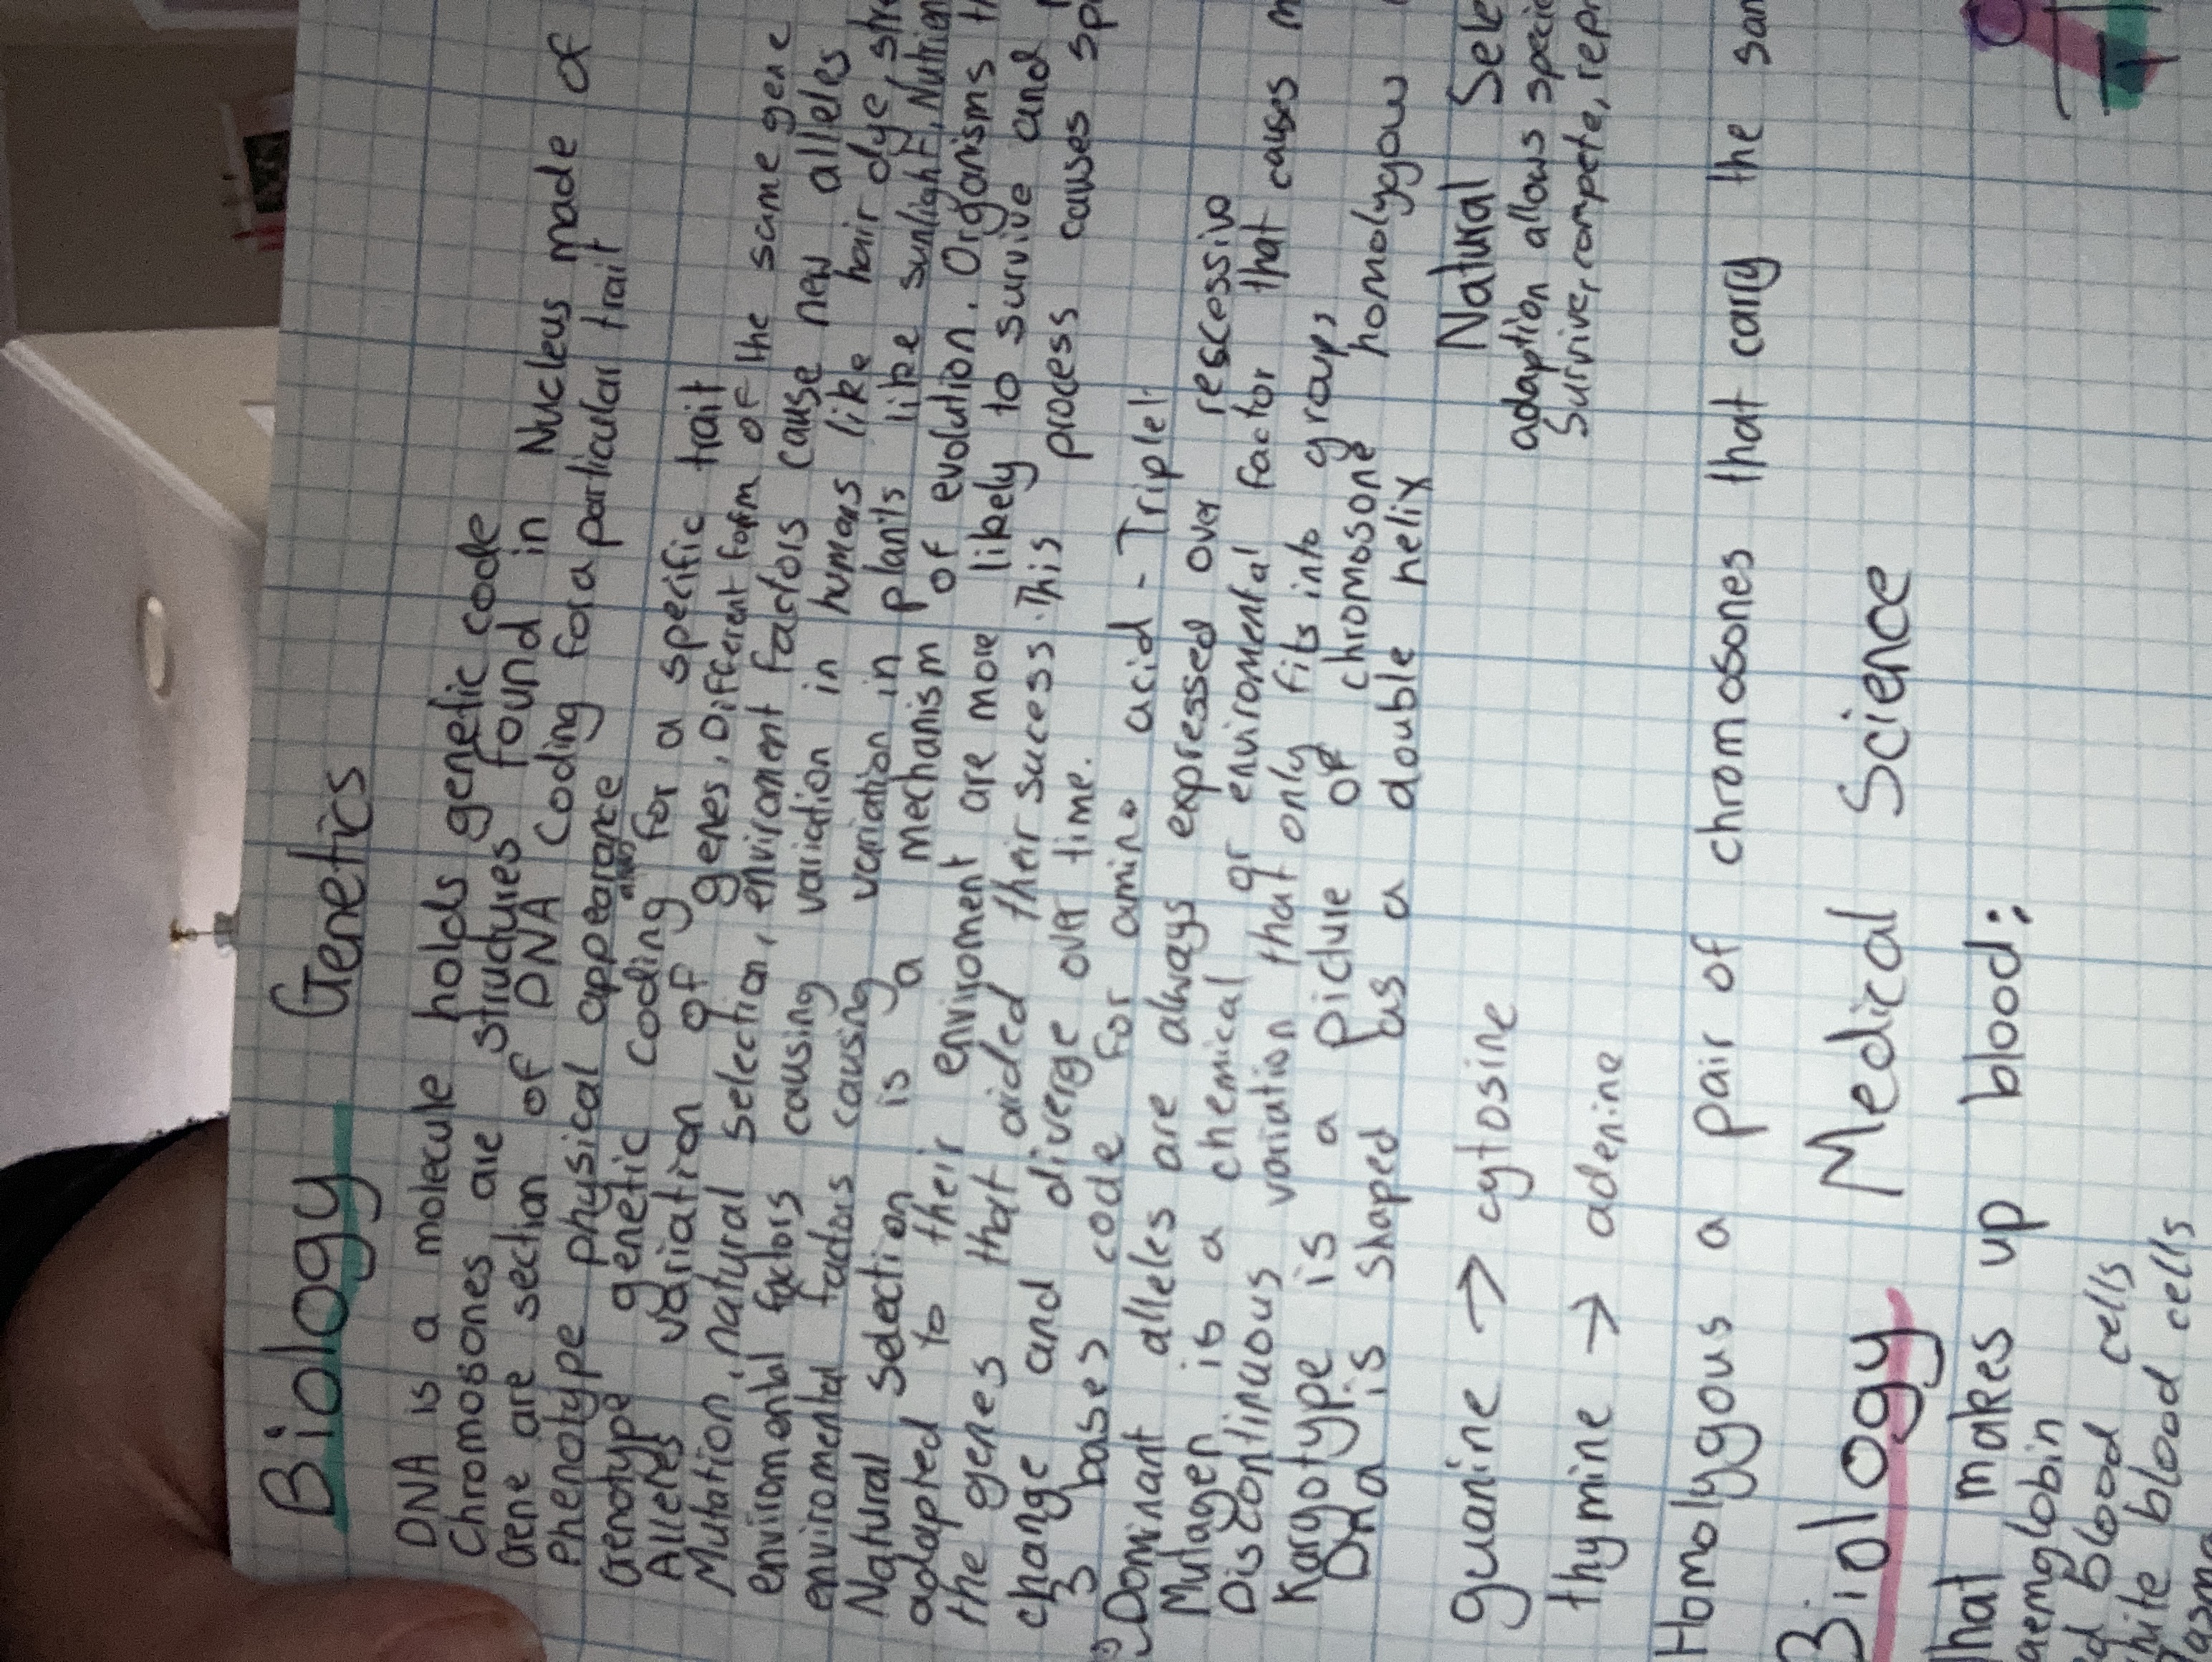 Biology Genetics
DNA is a molecule holds genetic code
Chromosones are structures found in Nucleus made of
Gene are section of DNA coding for a particular trait
Phenotype physical appearance
Genotype genetic coding for a specific trait
Alleles variation of genes. Different form of the same gene
Mutation, natural selection, enviroment factors cause new alleles
enviromental factors causing variation in humans like hair dye, str
enviromental factors causing variation in plants like sunlight, Nutrien
Natural selection is a mechanism of evolution. Organisms th
adapted to their enviroment are more likely to survive and
the genes that aided their sucess. This process causes sp
change and diverge over time.
3 bases code for amino acid - Triplet
Dominant alleles are always expressed over rescessive
Mutagen is a chemical or enviromental factor that causes m
Discontinuous variation that only fits into groups
Kargotype is a picture of chromosone homolygow
Dna is shaped as a double helix
guanine → cytosine
thymine → adenine
Natural Sele
adaption allows specie
Survive, compete, repr
Homolygous a pair of chromosones that carry the sam
Biology Medical Science
hat makes up blood:
aemglobin
ed blood cells
hite blood cells
lasma